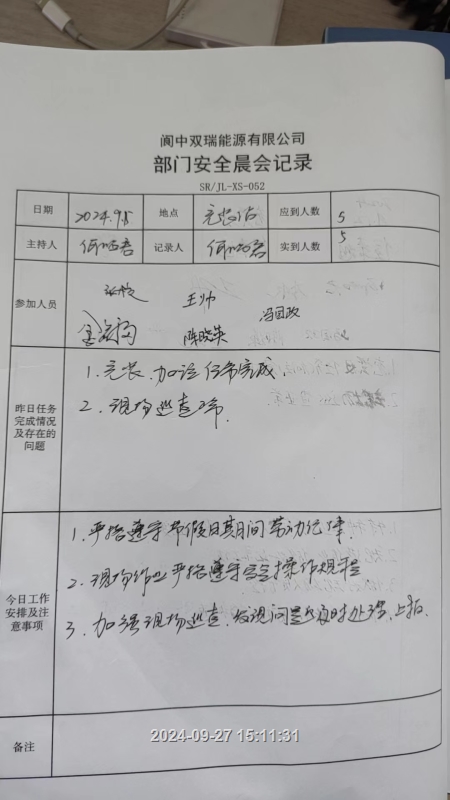 阆中双瑞能源有限公司
部门安全晨会记录
SR/JL-XS-052
日期 2024.9.5 地点 充装站 应到人数 5
主持人 记录人 实到人数 5
参加人员 王帅 冯国政
陈晓英
昨日任务完成情况及存在的问题
1.充装、加注任务完成.
2.现场巡查正常.
今日工作安排及注意事项
1.严格遵守节假日期间劳动纪律.
2.现场作业严格遵守安全操作规程
3.加强现场巡查,发现问题及时处理,上报.
备注
2024-09-27 15:11:31